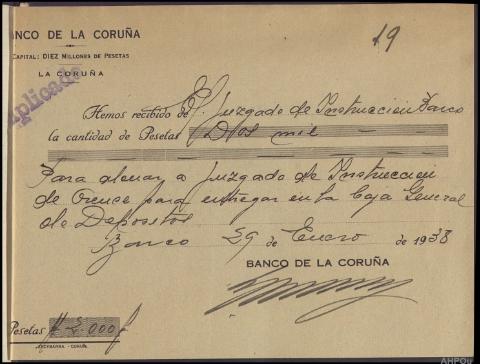 BANCO DE LA CORUÑA
CAPITAL: DIEZ MILLONES DE PESETAS
LA CORUÑA
19
Duplicado
Hemos recibido del Juzgado de Instruccion Barco
la cantidad de Pesetas Dos mil
Para abonar a Juzgado de Instruccion
de Orense para entregar en la Caja General
de Depositos
Barco 29 de Enero de 1938
BANCO DE LA CORUÑA
Pesetas # 2.000 #
AHPOu